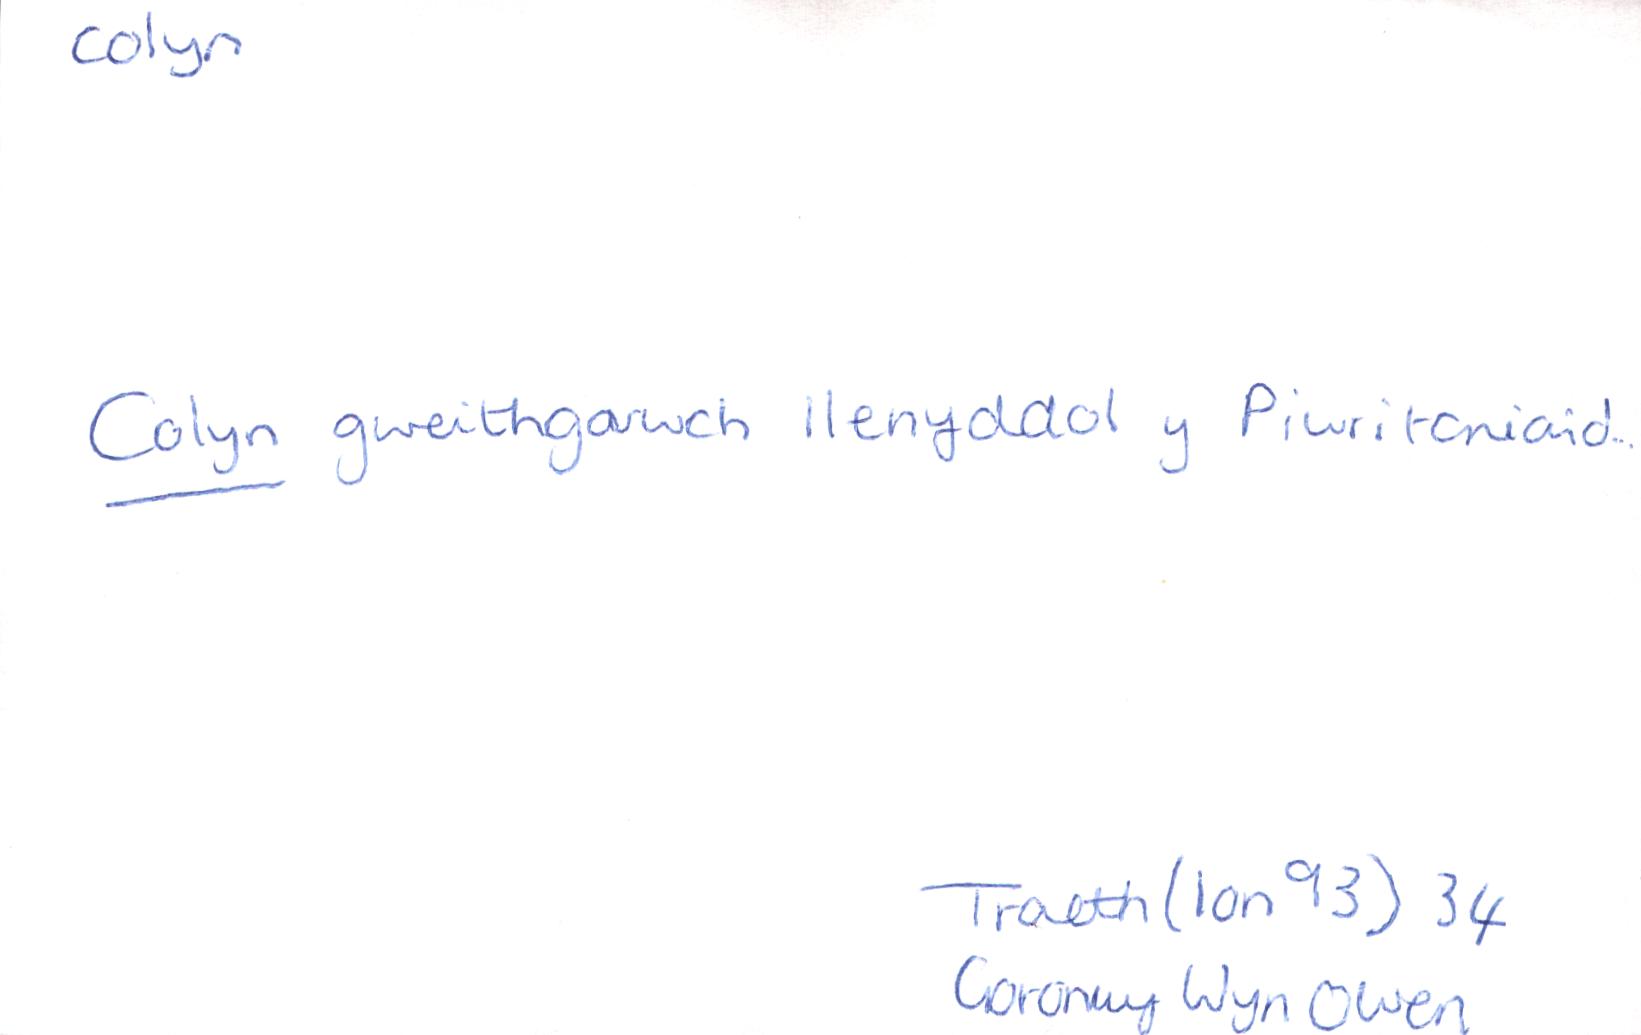 colyn
Colyn gweithgarwch llenyddol y Piwritaniaid..
Traeth (Ion 93) 34
Goronwy Wyn Owen